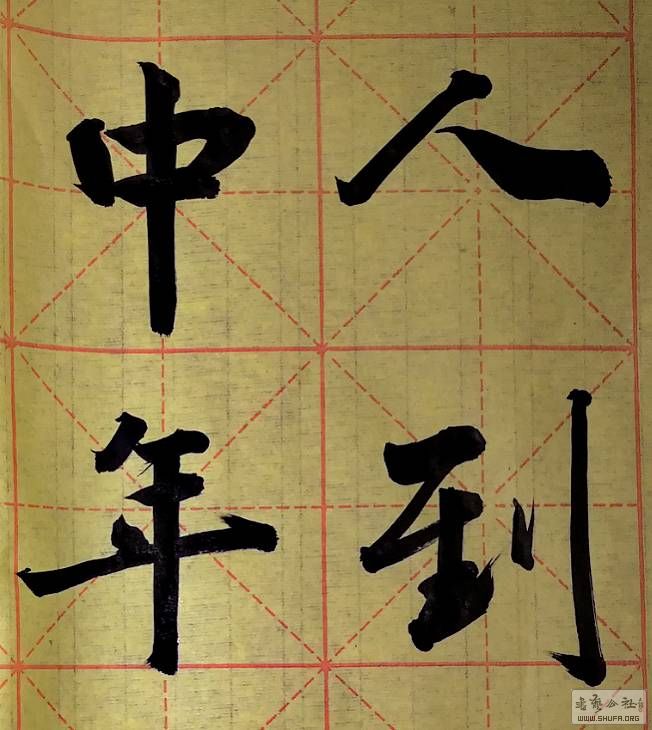 人到
中年
书艺公社
WWW.SHUFA.ORG